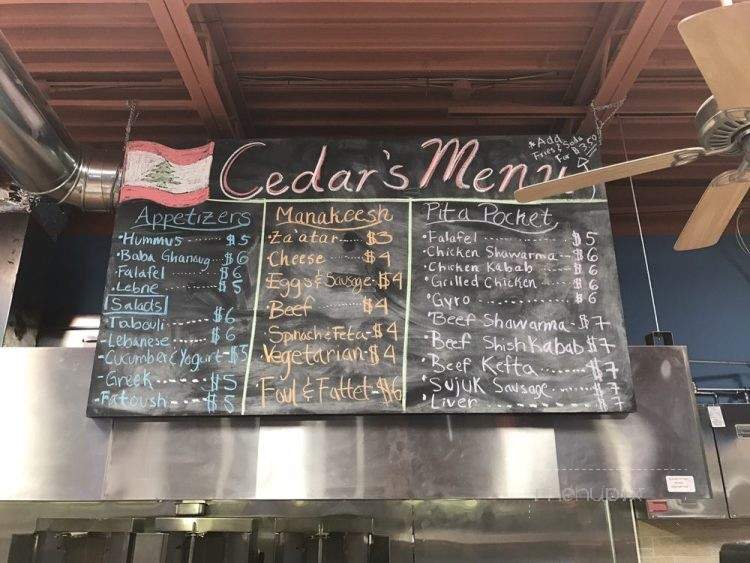 Cedar's Menu
* Add
Fries & Soda
For $3.50
Appetizers
• Hummus ...... $5
• Baba Ghanaug ... $6
• Falafel ...... $6
• Lebne ...... $5
Salads
• Tabouli ---- $6
• Lebanese ---- $6
• Cucumber & Yogurt - $5
• Greek ---- $5
• Fatoush ---- $5
Manakeesh
• Za'atar ...... $3
• Cheese ...... $4
Eggs & Sausage - $4
• Beef ...... $4
Spinach & Feta - $4
• Vegetarian - $4
• Foul & Fattet - $6
Pita Pocket
• Falafel ...... $5
• Chicken Shawarma -- $6
• Chicken Kabab ...... $6
• Grilled Chicken ...... $6
• Gyro ...... $6
• Beef Shawarma - $7
• Beef Shish Kabab $7
• Beef Kefta ...... $7
• Sujuk Sausage ...... $7
• Liver ------ $7
menupix